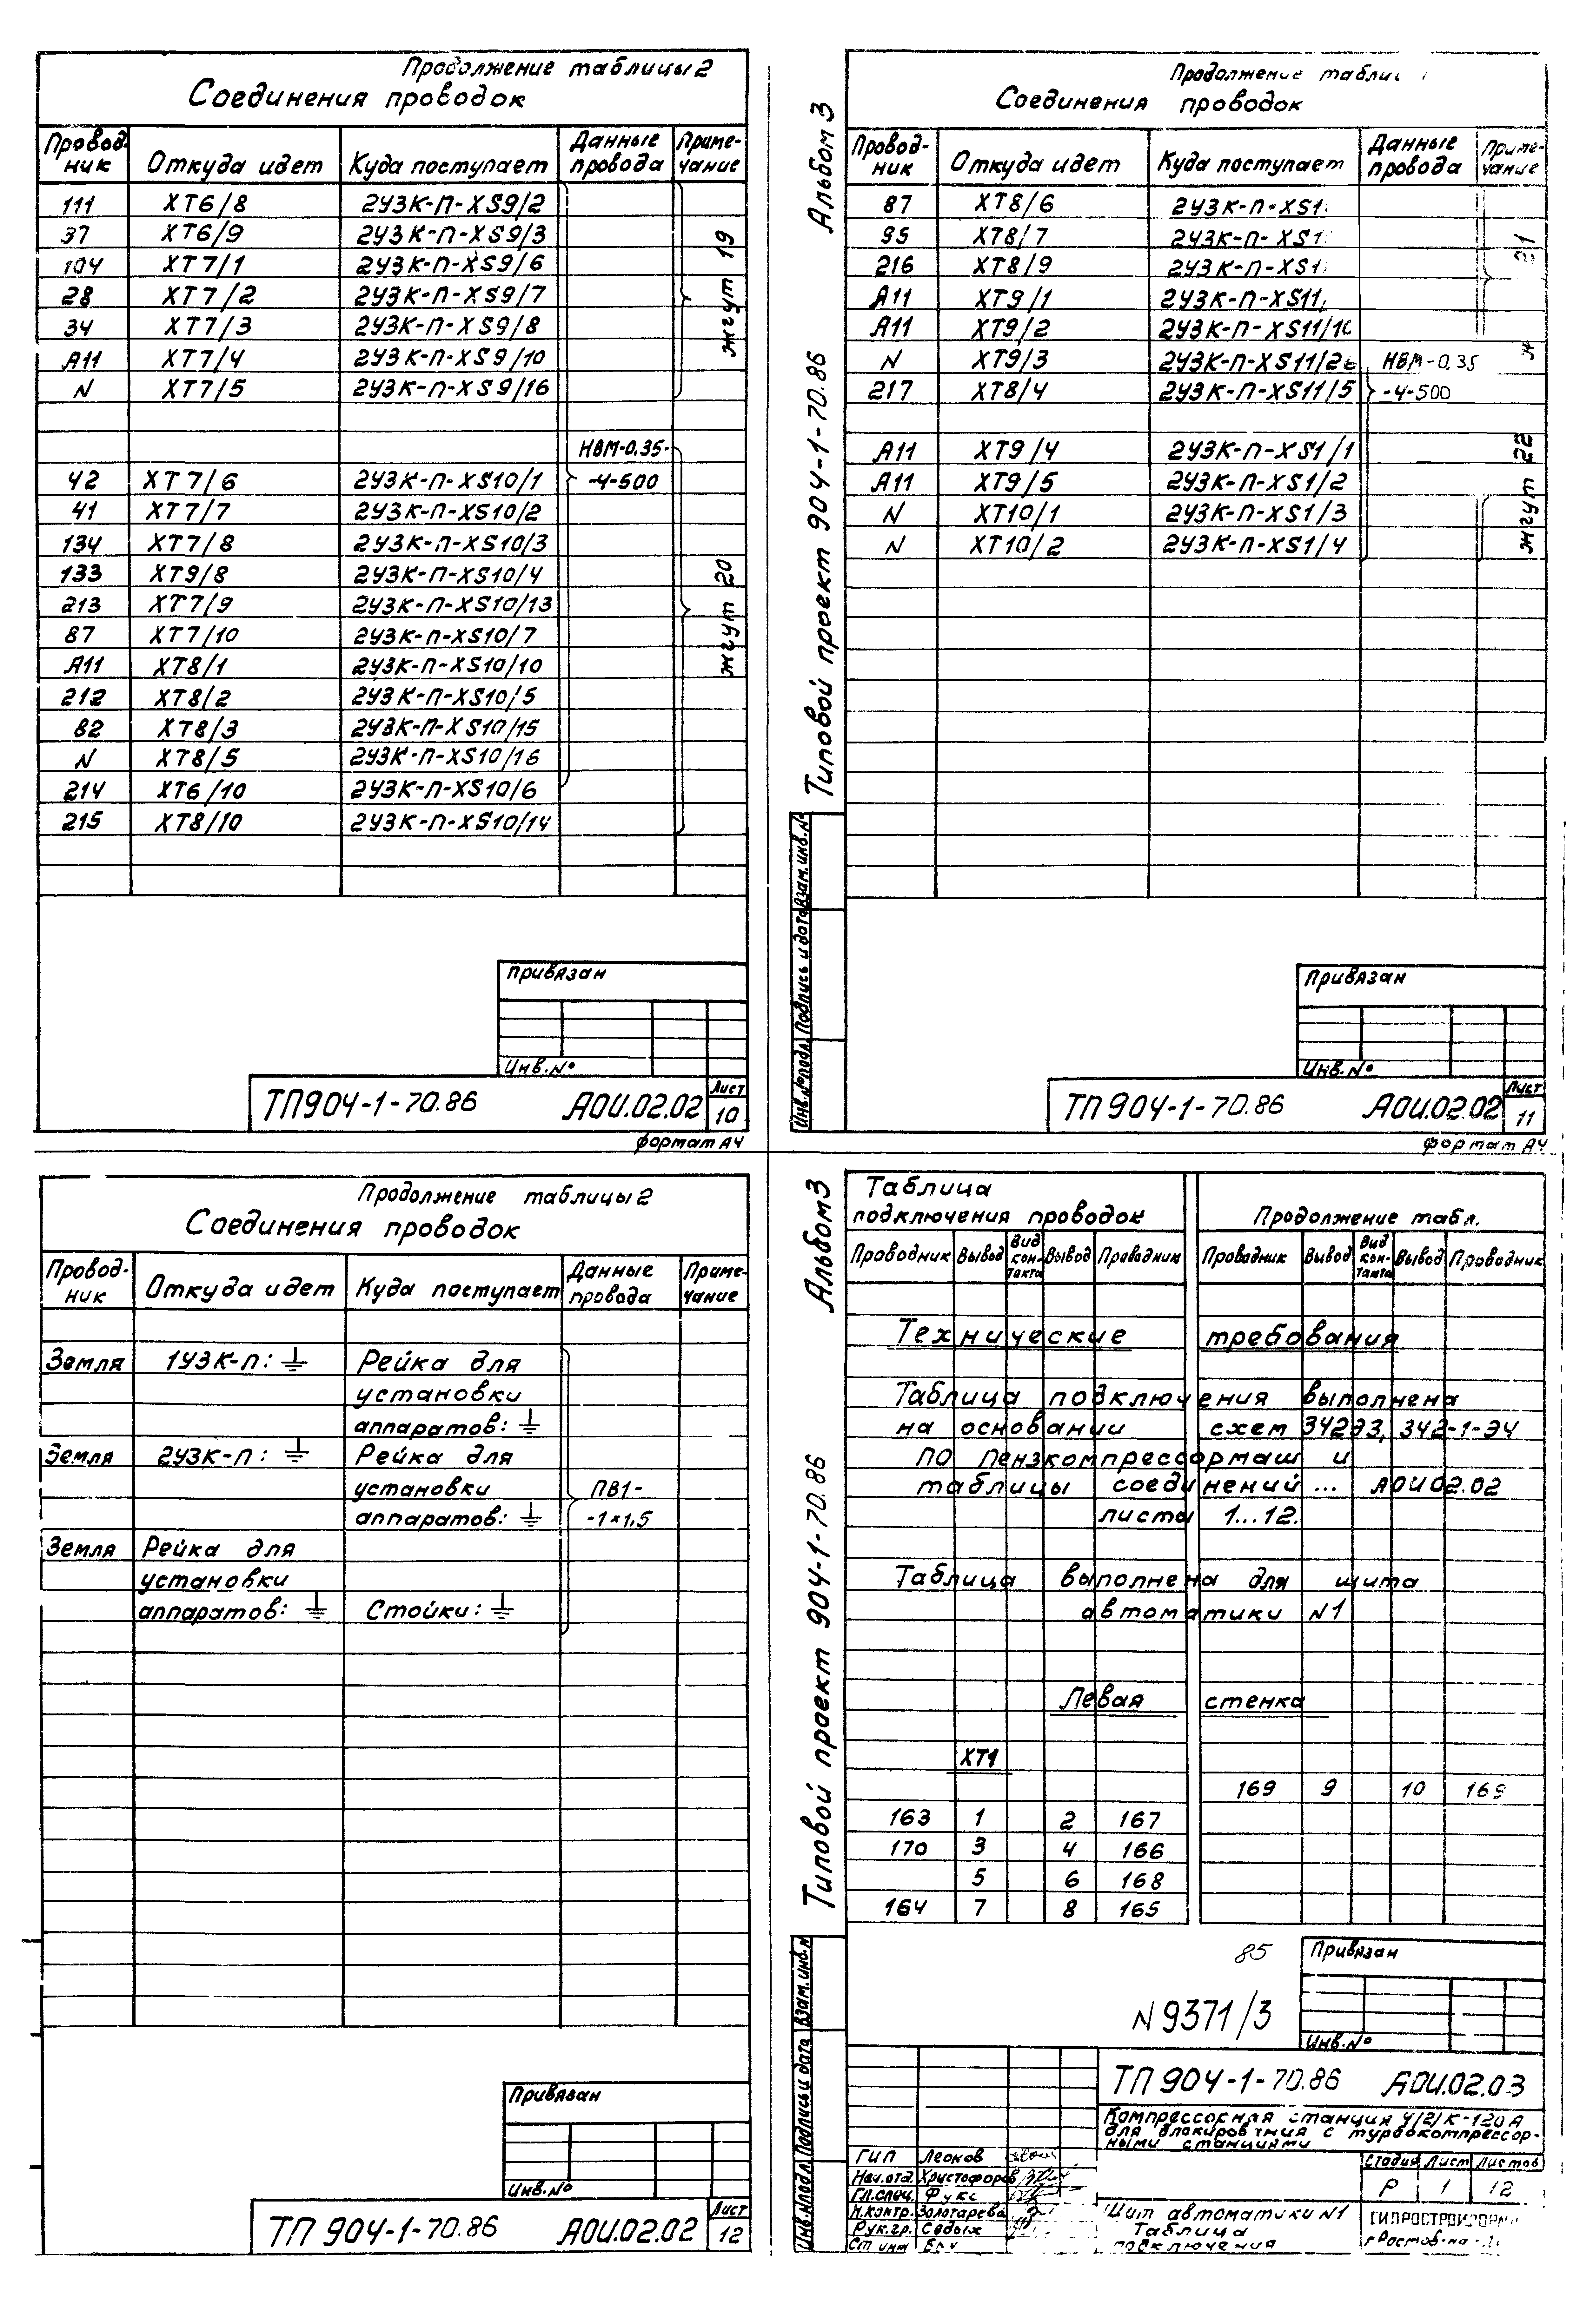 Продолжение таблицы 2
Соединения проводок
Провод-ник Откуда идет Куда поступает Данные провода Приме-чание
111 XT6/8 2УЗК-П-XS9/2
37 XT6/9 2УЗК-П-XS9/3
104 XT7/1 2УЗК-П-XS9/6
28 XT7/2 2УЗК-П-XS9/7
34 XT7/3 2УЗК-П-XS9/8
A11 XT7/4 2УЗК-П-XS9/10
N XT7/5 2УЗК-П-XS9/16
жгут 19
НВМ-0.35-
42 XT7/6 2УЗК-П-XS10/1 -4-500
41 XT7/7 2УЗК-П-XS10/2
134 XT7/8 2УЗК-П-XS10/3
133 XT9/8 2УЗК-П-XS10/4
213 XT7/9 2УЗК-П-XS10/13
87 XT7/10 2УЗК-П-XS10/7
A11 XT8/1 2УЗК-П-XS10/10
212 XT8/2 2УЗК-П-XS10/5
82 XT8/3 2УЗК-П-XS10/15
N XT8/5 2УЗК-П-XS10/16
214 XT6/10 2УЗК-П-XS10/6
215 XT8/10 2УЗК-П-XS10/14
жгут 20
Привязан
Инв.№
ТП904-1-70.86 АОИ.02.02 Лист 10
формат А4
Альбом 3
Типовой проект 904-1-70.86
Взам.инв.№
Подпись и дата
Инв.№подл.
Продолжение
Соединения проводок
Провод-ник Откуда идет Куда поступает Данные провода Приме-чание
87 XT8/6 2УЗК-П-XS1
95 XT8/7 2УЗК-П-XS1
216 XT8/9 2УЗК-П-XS1
A11 XT9/1 2УЗК-П-XS11/
A11 XT9/2 2УЗК-П-XS11/10
N XT9/3 2УЗК-П-XS11/2 НВМ-0.35
217 XT8/4 2УЗК-П-XS11/5 -4-500
21
A11 XT9/4 2УЗК-П-XS1/1
A11 XT9/5 2УЗК-П-XS1/2
N XT10/1 2УЗК-П-XS1/3
N XT10/2 2УЗК-П-XS1/4
жгут 22
Привязан
Инв.№
ТП904-1-70.86 АОИ.02.02 Лист 11
формат А4
Продолжение таблицы 2
Соединения проводок
Провод-ник Откуда идет Куда поступает Данные провода Приме-чание
Земля 1УЗК-П: ⏚ Рейка для
установки
аппаратов: ⏚
Земля 2УЗК-П: ⏚ Рейка для
установки ПВ1-
аппаратов: ⏚ -1×1,5
Земля Рейка для
установки
аппаратов: ⏚ Стойки: ⏚
Привязан
Инв.№
ТП 904-1-70.86 АОИ.02.02 Лист 12
Альбом 3
Типовой проект 904-1-70.86
Взам.инв.№
Подпись и дата
Инв.№подл.
Таблица
подключения проводок Продолжение табл.
Проводник Вывод Вид кон-такта Вывод Проводник Проводник Вывод Вид кон-такта Вывод Проводник
Технические требования
Таблица подключения выполнена
на основании схем 342ЭЗ, 342-1-Э4
ПО Пензкомпрессормаш и
таблицы соединений ... АОИ 02.02
листа 1...12.
Таблица выполнена для щита
автоматики N1
Левая стенка
XT1
169 9 10 169
163 1 2 167
170 3 4 166
5 6 168
164 7 8 165
85
N 9371/3
Привязан
Инв.№
ТП 904-1-70.86 АОИ.02.03
Компрессорная станция 4/2/К-120А
для блокирования с турбокомпрессор-
ными станциями
ГИП Леонов
Нач.отд. Христофоров
Гл.спец. Фукс
Н.контр. Золотарева
Рук.гр. Седых
Ст инж
Стадия Лист Листов
Р 1 12
Щит автоматики N1
Таблица
подключения
г Ростов-на-